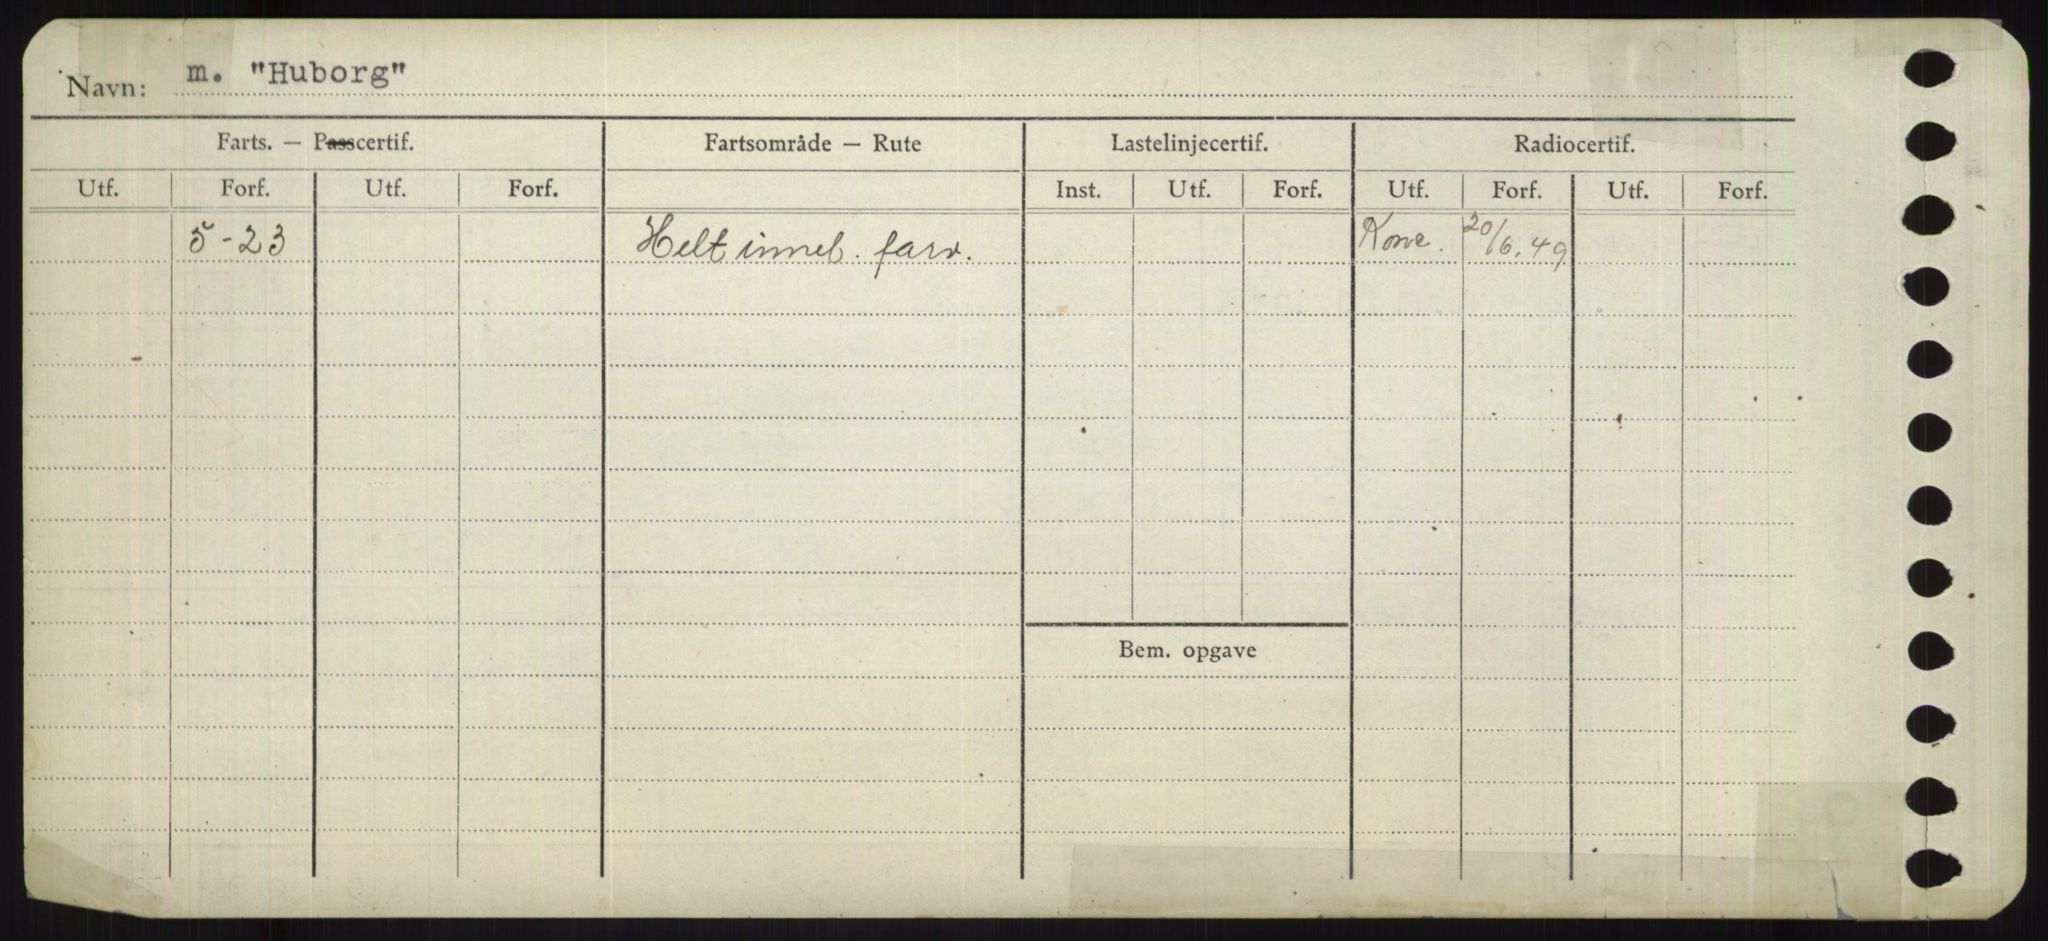 Navn: m. "Huborg"
Farts. — Passcertif. Fartsområde — Rute Lastelinjecertif. Radiocertif.
Utf. Forf. Utf. Forf. Inst. Utf. Forf. Utf. Forf. Utf. Forf.
5-23 Helt innel. farv. 20/6.49
Bem. opgave